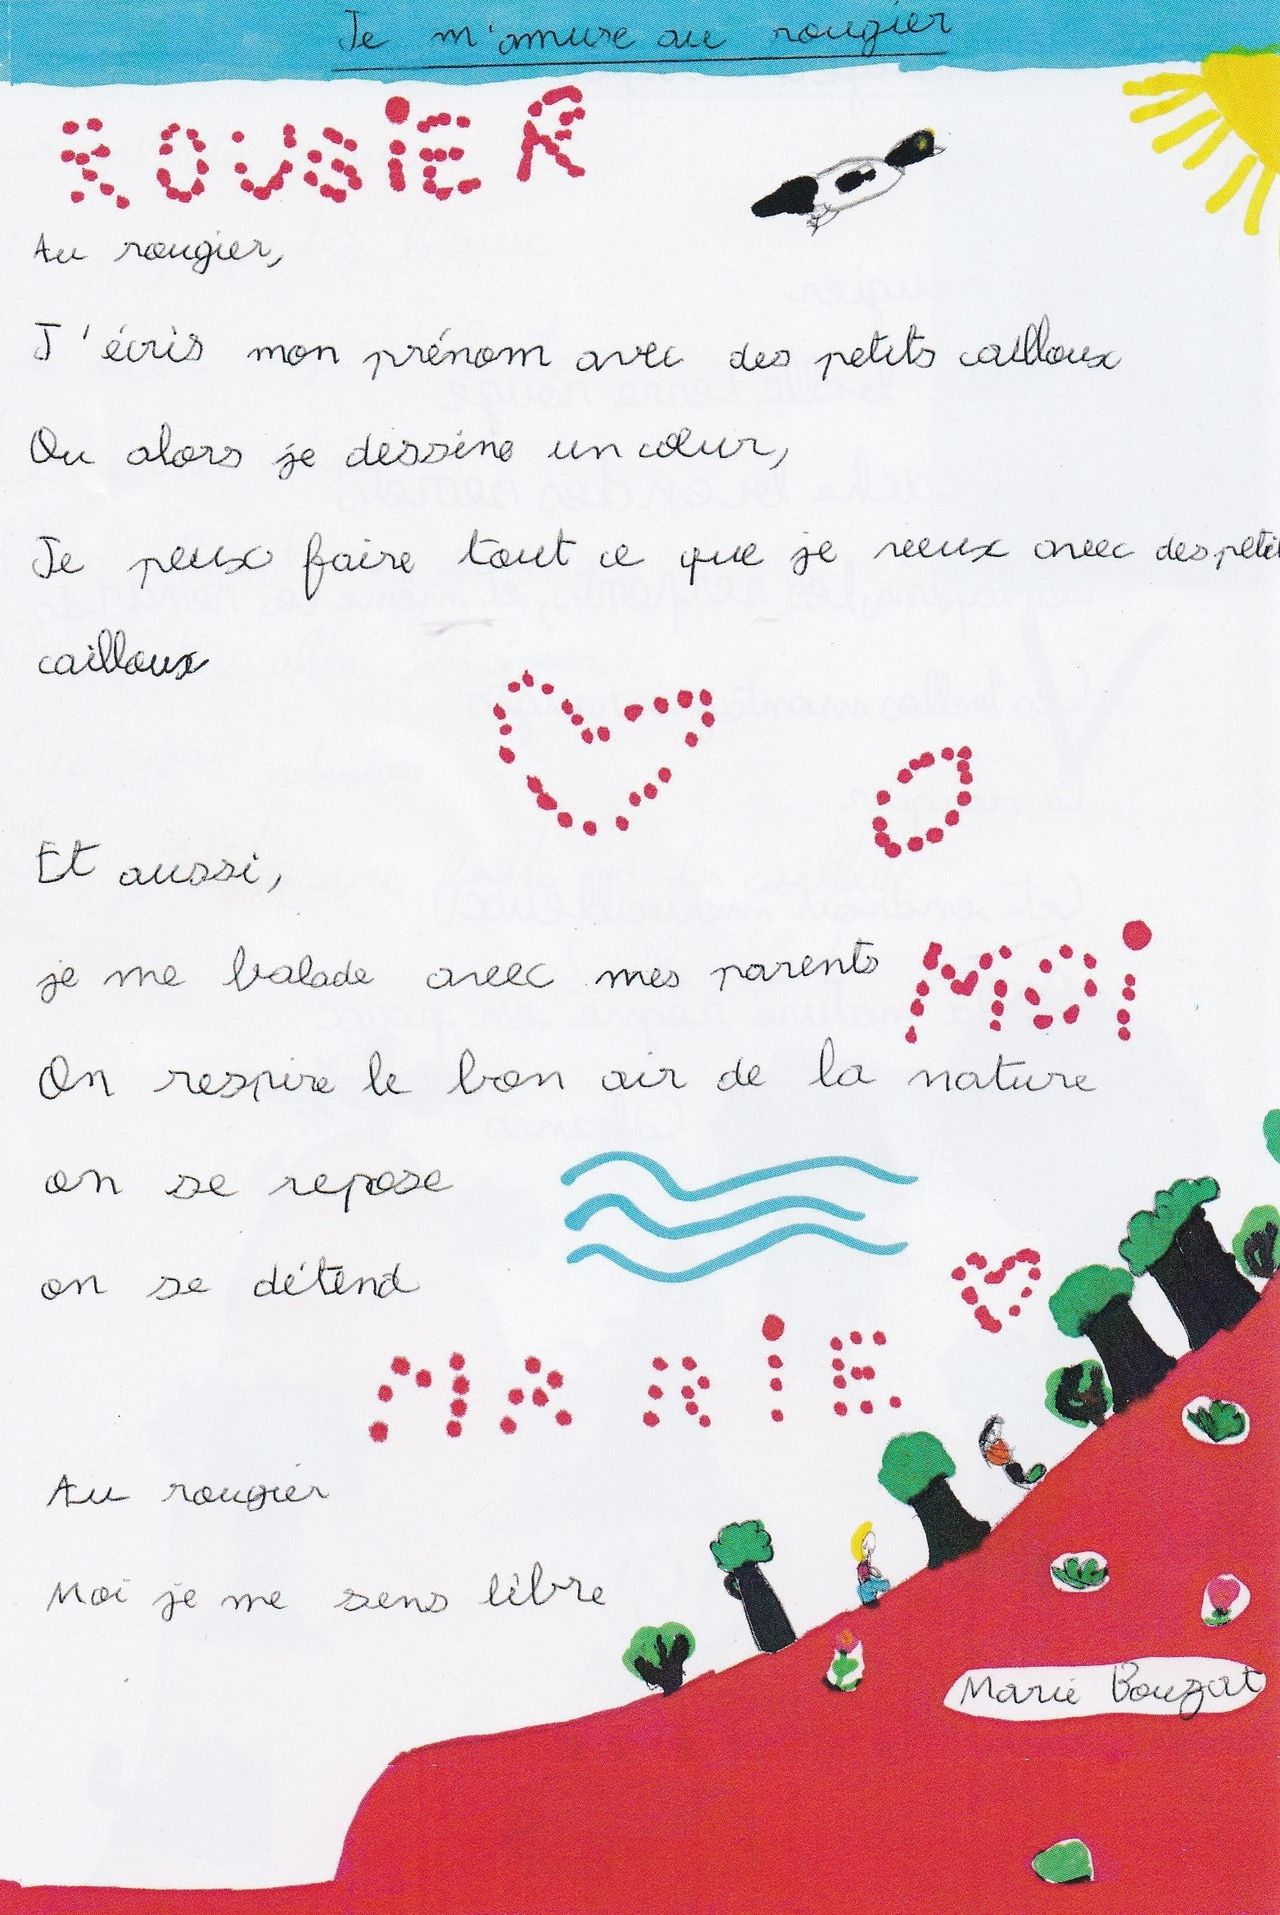 Je m'amuse au rougier
ROUGIER
Au rougier,
J'écris mon prénom avec des petits cailloux
Ou alors je dessine un cœur,
Je peux faire tout ce que je veux avec des petit
cailloux
Et aussi,
je me balade avec mes parents
MOi
On respire le bon air de la nature
on se repose
on se détend
MARIE
Au rougier
Moi je me sens libre
Marie Bouzat